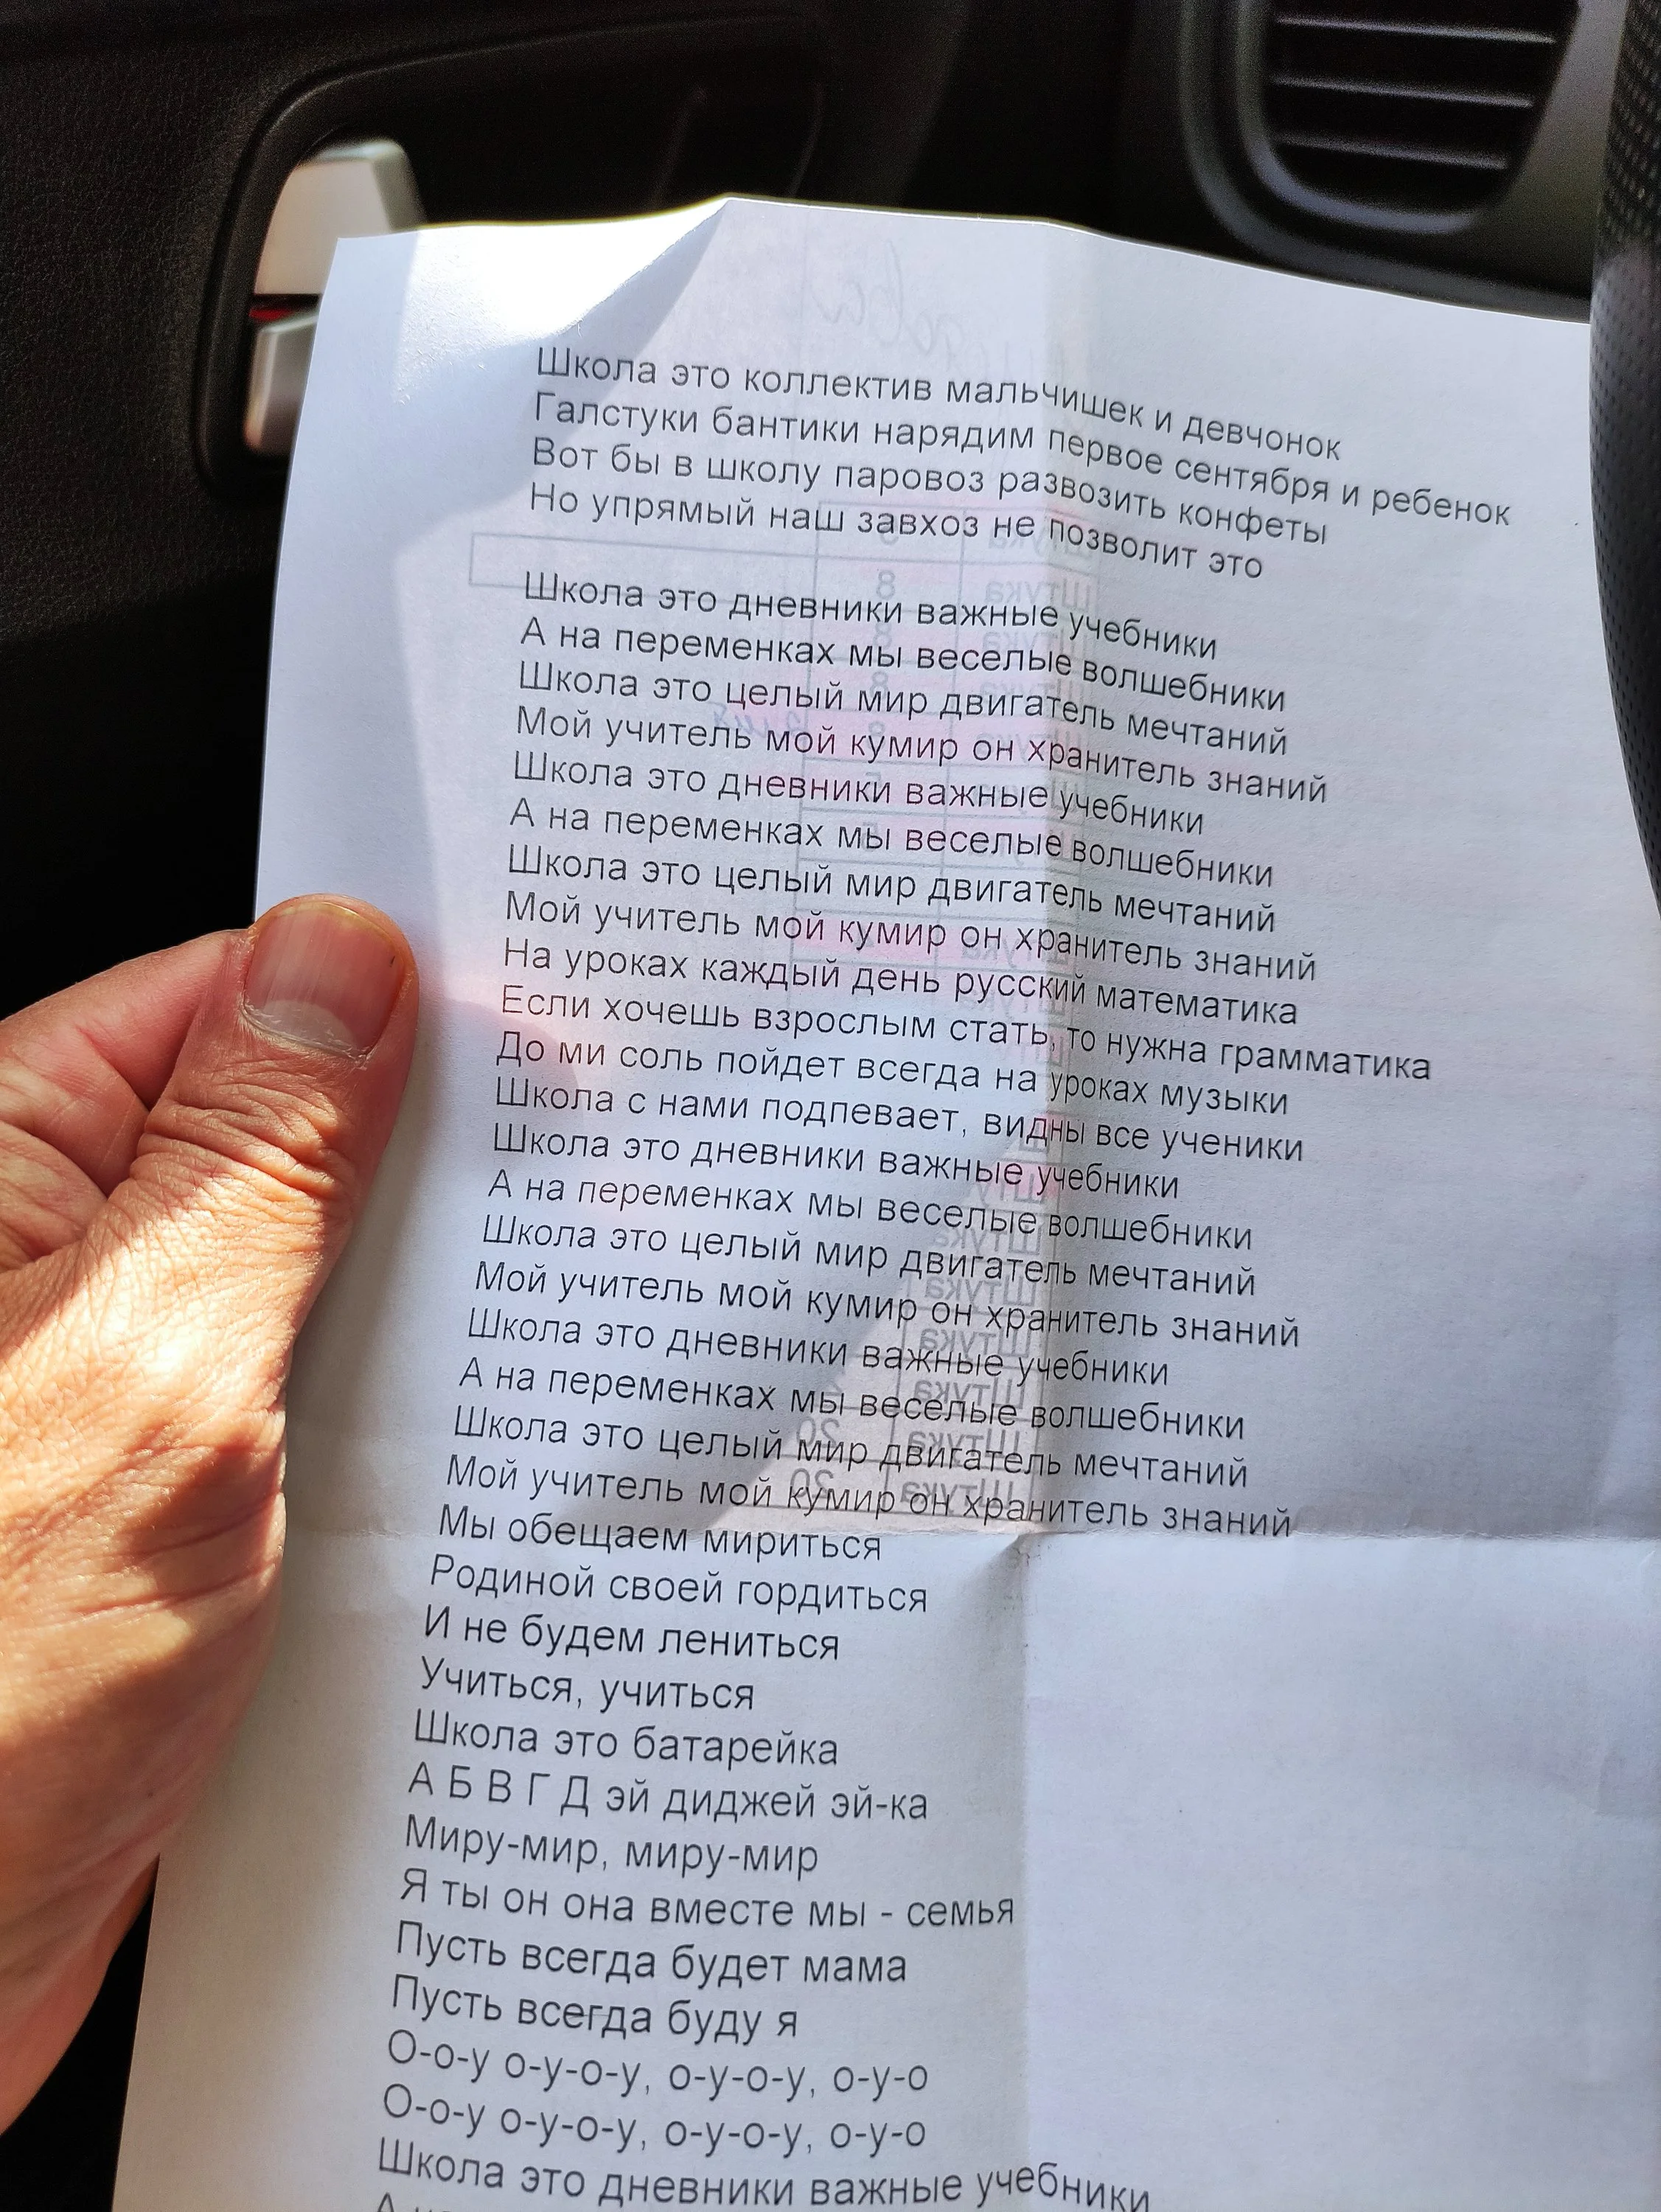 Школа это коллектив мальчишек и девчонок
Галстуки бантики нарядим первое сентября и ребенок
Вот бы в школу паровоз развозить конфеты
Но упрямый наш завхоз не позволит это
Школа это дневники важные учебники
А на переменках мы веселые волшебники
Школа это целый мир двигатель мечтаний
Мой учитель мой кумир он хранитель знаний
Школа это дневники важные учебники
А на переменках мы веселые волшебники
Школа это целый мир двигатель мечтаний
Мой учитель мой кумир он хранитель знаний
На уроках каждый день русский математика
Если хочешь взрослым стать, то нужна грамматика
До ми соль пойдет всегда на уроках музыки
Школа с нами подпевает, видны все ученики
Школа это дневники важные учебники
А на переменках мы веселые волшебники
Школа это целый мир двигатель мечтаний
Мой учитель мой кумир он хранитель знаний
Школа это дневники важные учебники
А на переменках мы веселые волшебники
Школа это целый мир двигатель мечтаний
Мой учитель мой кумир он хранитель знаний
Мы обещаем мириться
Родиной своей гордиться
И не будем лениться
Учиться, учиться
Школа это батарейка
А Б В Г Д эй диджей эй-ка
Миру-мир, миру-мир
Я ты он она вместе мы - семья
Пусть всегда будет мама
Пусть всегда буду я
О-о-у о-у-о-у, о-у-о-у, о-у-о
О-о-у о-у-о-у, о-у-о-у, о-у-о
Школа это дневники важные учебники